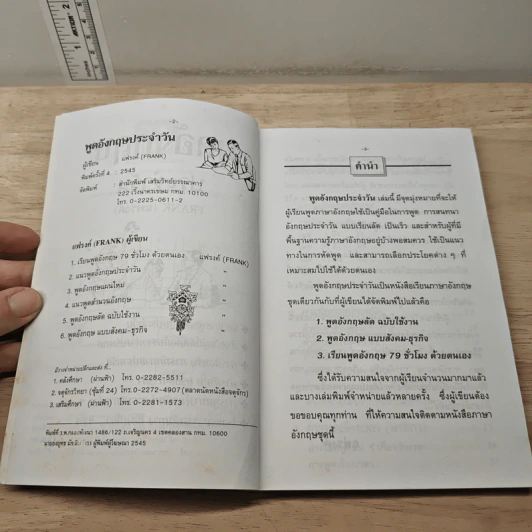 -2-
พูดอังกฤษประจำวัน
ผู้เขียน : แฟรงค์ (FRANK)
พิมพ์ครั้งที่ 4 : 2545
จัดพิมพ์ : สำนักพิมพ์ เสริมวิทย์บรรณาคาร
222 เวิ้งนาครเขษม กทม. 10100
โทร. 0-2225-0611-2
แฟรงค์ (FRANK) ผู้เขียน
1. เรียนพูดอังกฤษ 79 ชั่วโมง ด้วยตนเอง แฟรงค์ (FRANK)
2. แนวพูดอังกฤษประจำวัน "
3. พูดอังกฤษแผนใหม่ "
4. แนวพูดสำนวนอังกฤษ "
5. พูดอังกฤษลัด ฉบับใช้งาน "
6. พูดอังกฤษ แบบสังคม-ธุรกิจ "
มีวางจำหน่ายปลีกและส่ง ที่...
1. คลังศึกษา (ผ่านฟ้า) โทร. 0-2282-5511
2. จตุจักรวิทยา (ซุ้มที่ 24) โทร. 0-2272-4907 (ตลาดนัดหนังสือจตุจักร)
3. เสริมศึกษา (ผ่านฟ้า) โทร. 0-2281-1573
1486/122 ถ.เจริญนคร 4 เขตคลองสาน กทม. 10600
ผู้พิมพ์ผู้โฆษณา 2545
-3-
คำนำ
พูดอังกฤษประจำวัน เล่มนี้ มีจุดมุ่งหมายที่จะให้
ผู้เรียนพูดภาษาอังกฤษใช้เป็นคู่มือในการพูด การสนทนา
อังกฤษประจำวัน แบบเรียนลัด เป็นเร็ว และสำหรับผู้ที่มี
พื้นฐานความรู้ภาษาอังกฤษอยู่บ้างพอสมควร ใช้เป็นแนว
ทางในการหัดพูด และสามารถเลือกประโยคต่าง ๆ ที่
เหมาะสมไปใช้ได้ด้วยตนเอง
พูดอังกฤษประจำวันเป็นหนังสือเรียนภาษาอังกฤษ
ชุดเดียวกันกับที่ผู้เขียนได้จัดพิมพ์ไปแล้วคือ
1. พูดอังกฤษลัด ฉบับใช้งาน
2. พูดอังกฤษ แบบสังคม-ธุรกิจ
3. เรียนพูดอังกฤษ 79 ชั่วโมง ด้วยตนเอง
ซึ่งได้รับความสนใจจากผู้เรียนจำนวนมากมาแล้ว
และบางเล่มพิมพ์จำหน่ายแล้วหลายครั้ง ซึ่งผู้เขียนต้อง
ขอขอบคุณทุกท่าน ที่ให้ความสนใจติดตามหนังสือภาษา
อังกฤษชุดนี้